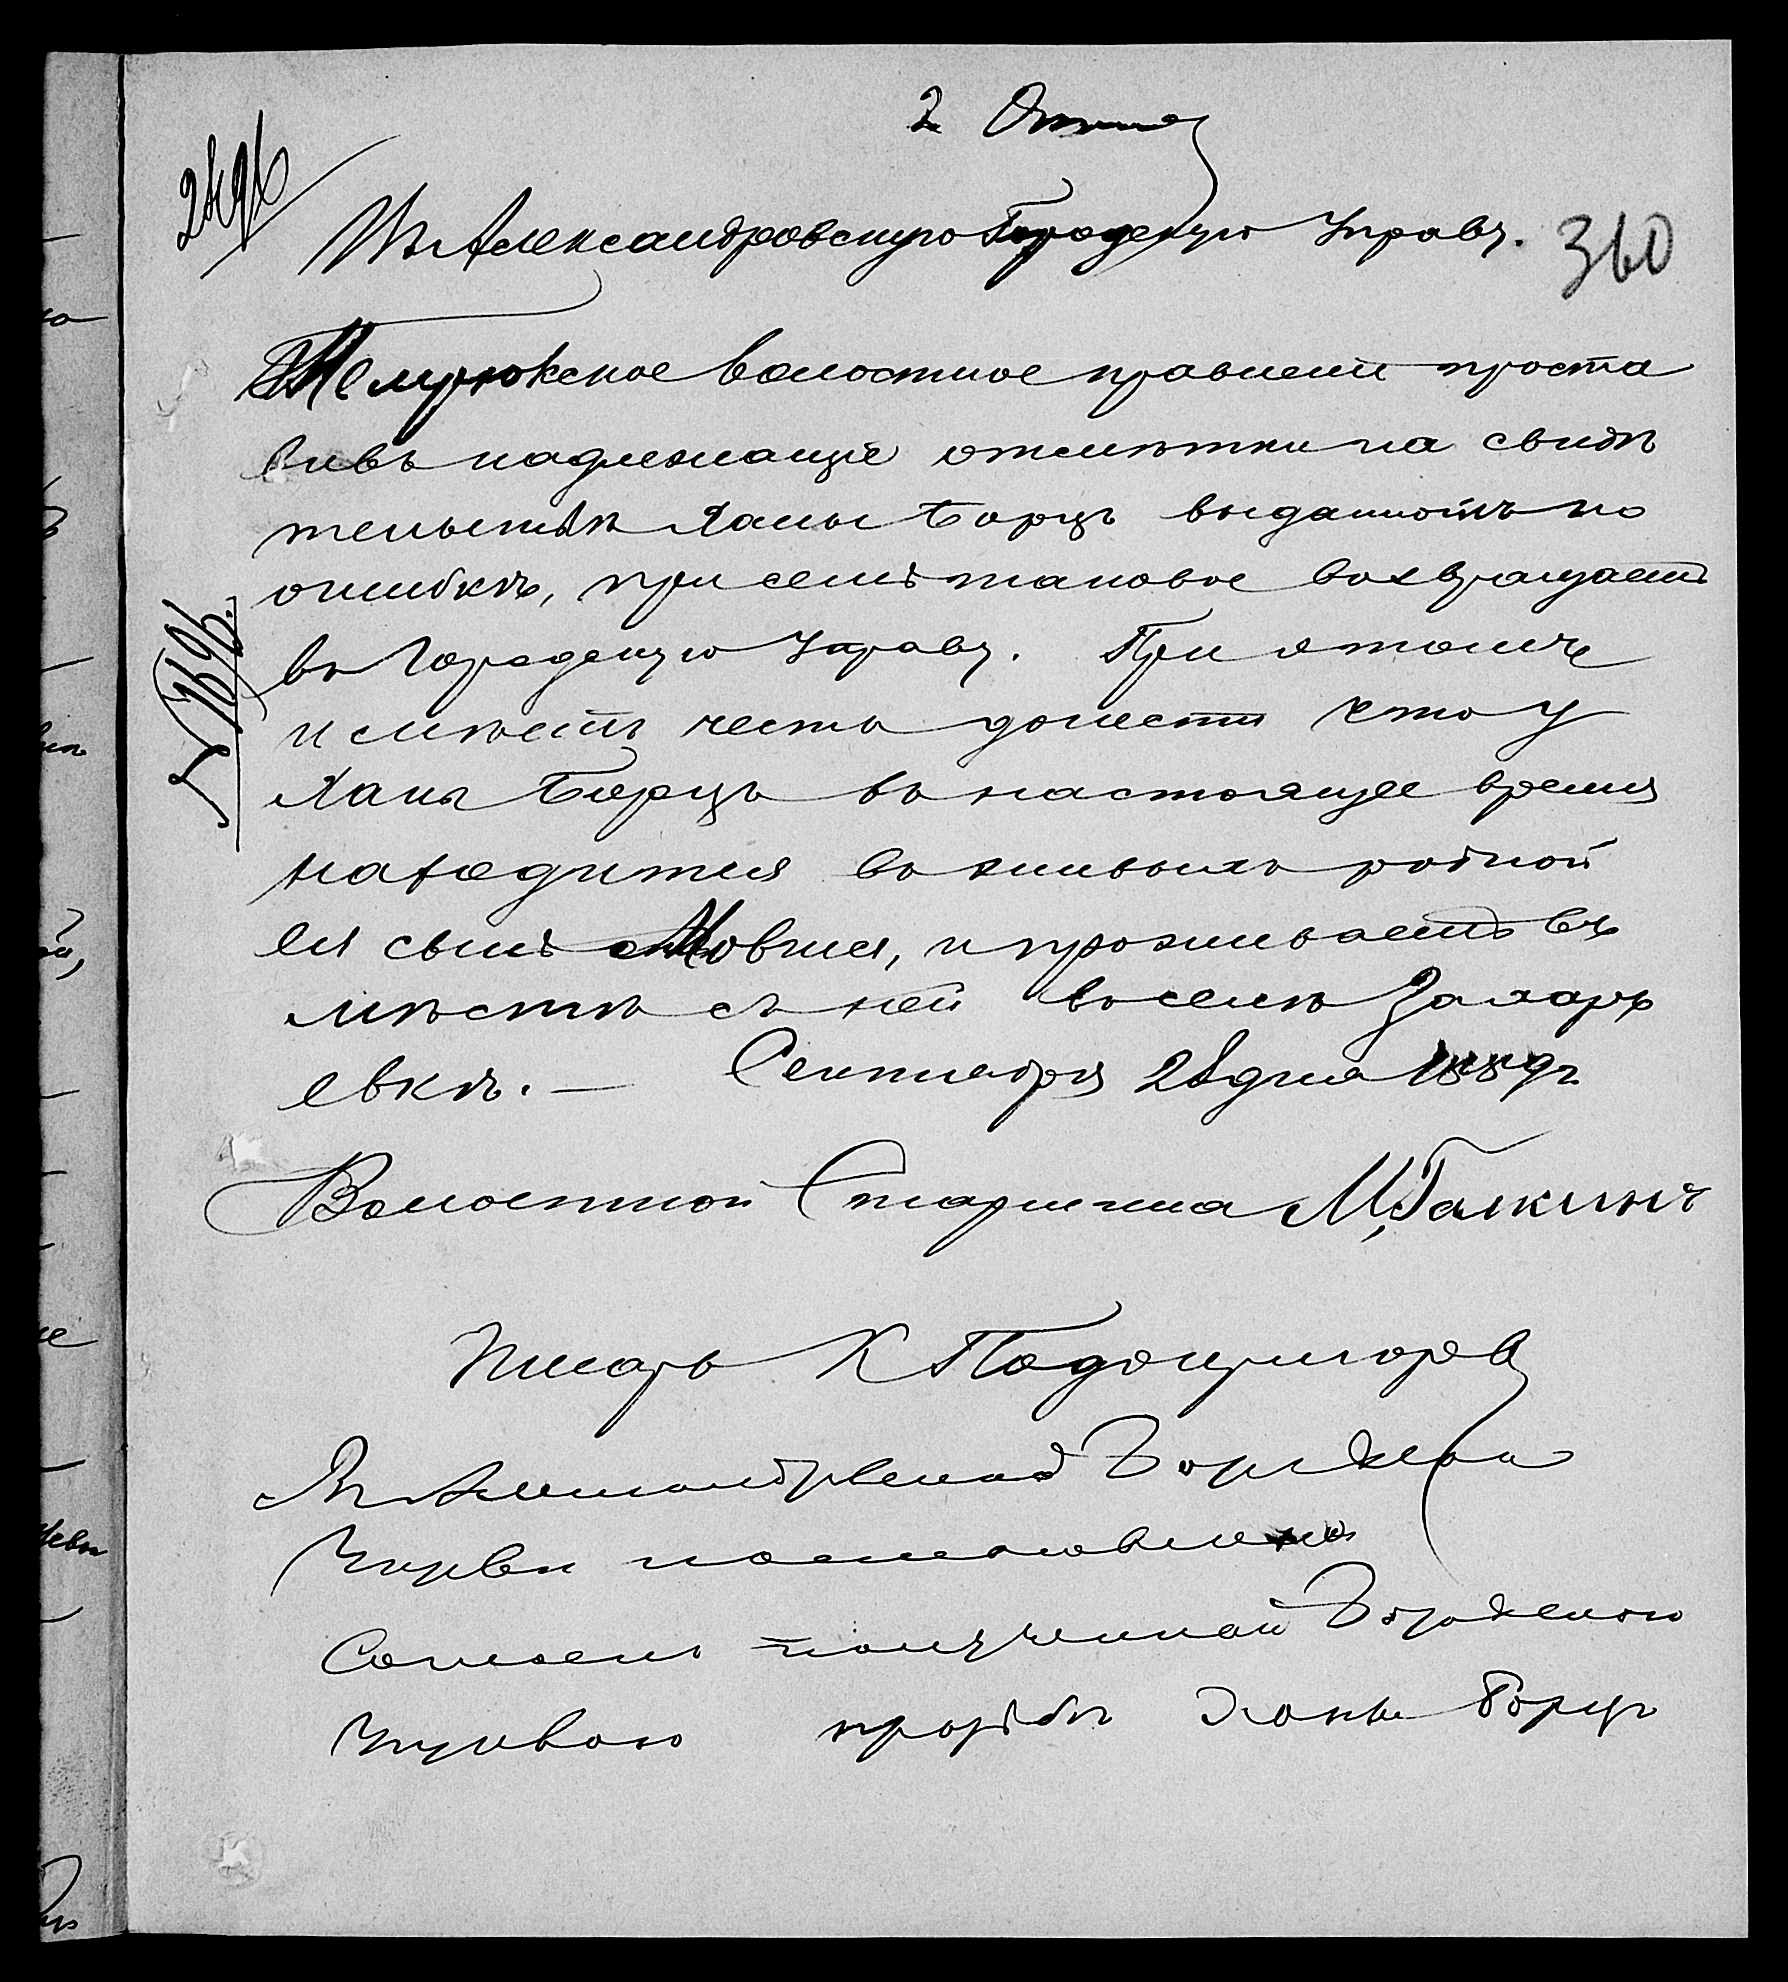 2 Октяб
2896
Въ Александровскую Городскую Управу.
360
Темрюкское волостное правленіе проста
вивъ надлежащіе отмѣтки на свидѣ
тельствѣ Ханы Борцъ выданномъ по
ошибкѣ, при семъ таковое возвращаетъ
въ Городскую Управу. При этомъ
имѣетъ честь донести что у
Ханы Борцъ въ настоящее время
находится въ живыхъ родной
ея сынъ Мовша, и проживаетъ въ
мѣстѣ съ ней въ селѣ Захарь
евкѣ. — Сентября 28 дня 1889 г.
Волостной Старшина М. Галкинъ
Писарь К Подопригоров
Въ Александровской Городской
Управѣ постановлено
полученной Городскою
Управою просьбѣ Ханы Борцъ